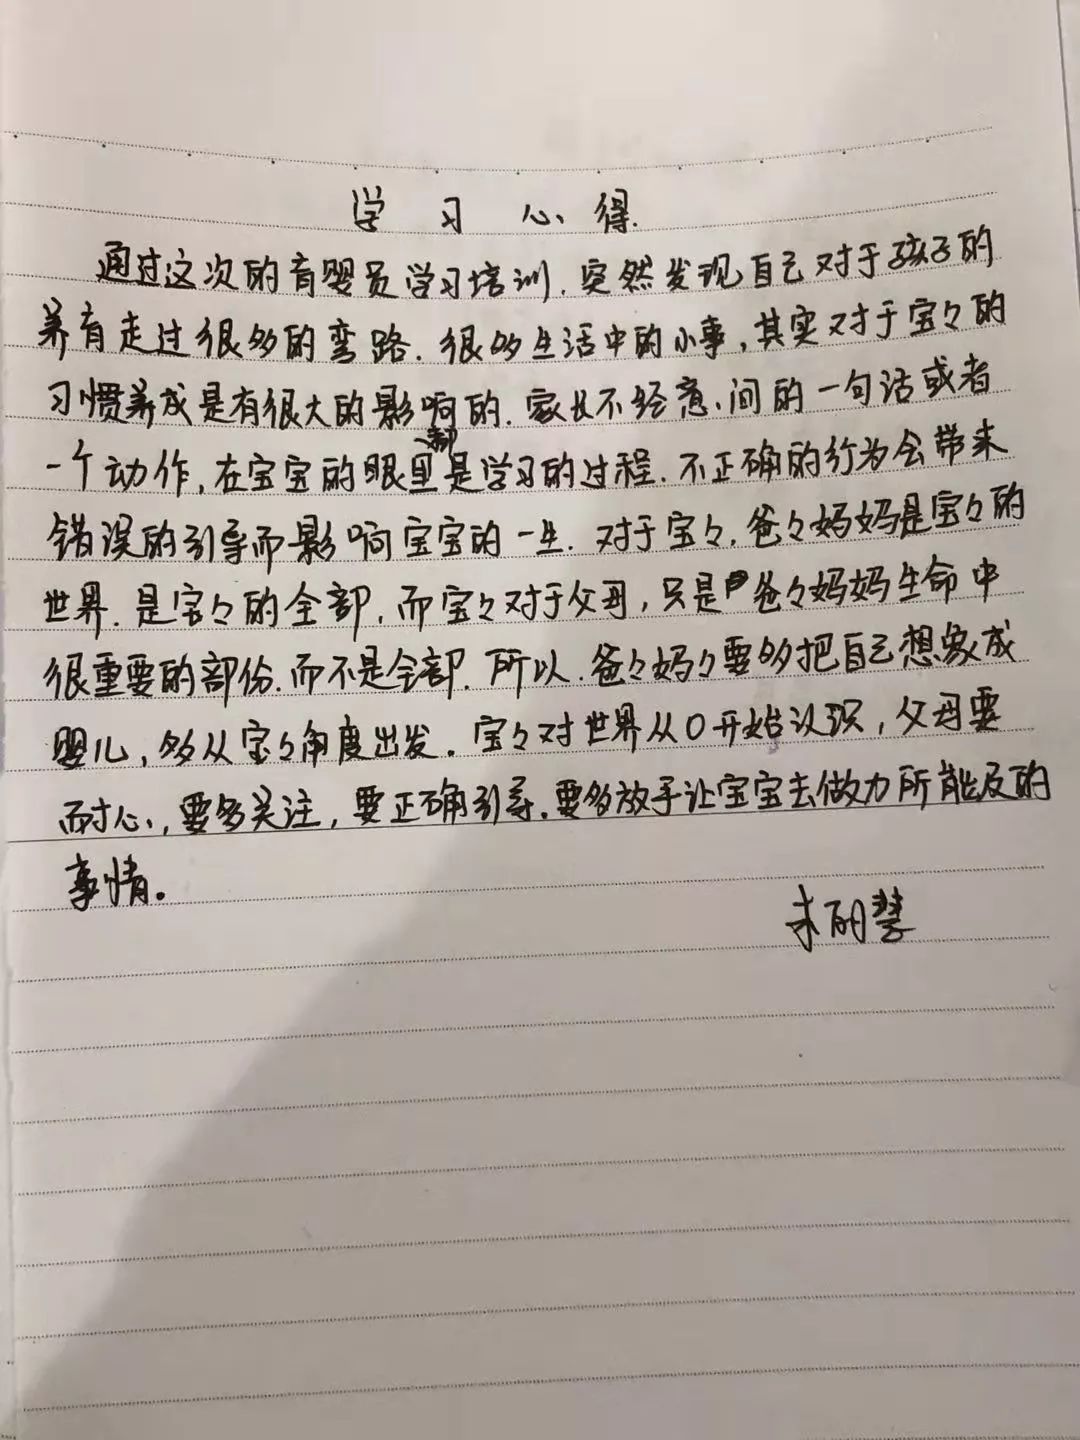 学习心得.
通过这次的育婴员学习培训.突然发现自己对于孩子的
养育走过很多的弯路.很多生活中的小事,其实对于宝々的
习惯养成是有很大的影响的.家长不经意、间的一句话或者
一个动作,在宝宝的眼里都是学习的过程.不正确的行为会带来
错误的引导而影响宝宝的一生.对于宝々,爸々妈妈是宝々的
世界.是宝々的全部,而宝々对于父母,只是爸々妈妈生命中
很重要的部份.而不是全部.所以.爸々妈々要多把自己想象成
婴儿,多从宝々角度出发.宝々对世界从0开始认识,父母要
耐心,要多关注,要正确引导.要多放手让宝宝去做力所能及的
事情。
丽慧